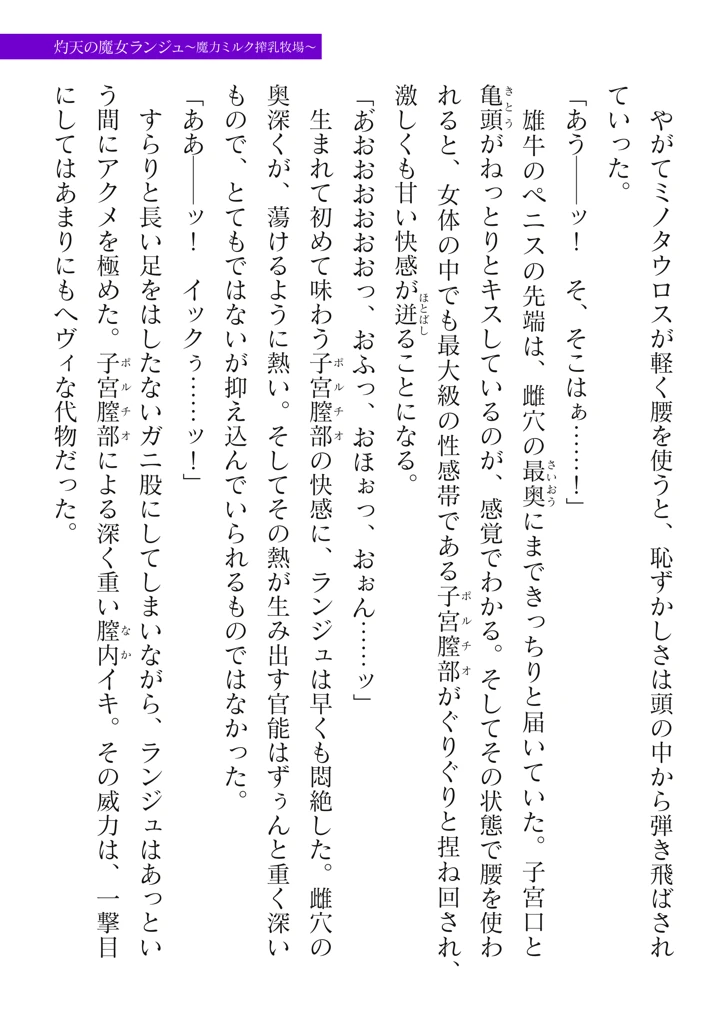 灼天の魔女ランジュ～魔力ミルク搾乳牧場～
　やがてミノタウロスが軽く腰を使うと、恥ずかしさは頭の中から弾き飛ばされ
ていった。
「あう――ッ！　そ、そこはぁ……！」
　雄牛のペニスの先端は、雌穴の最奥にまできっちりと届いていた。子宮口と
亀頭がねっとりとキスしているのが、感覚でわかる。そしてその状態で腰を使わ
れると、女体の中でも最大級の性感帯である子宮膣部がぐりぐりと捏ね回され、
激しくも甘い快感が迸ることになる。
「あ゙おおおおおおっ、おふっ、おほぉっ、おぉん……ッ」
　生まれて初めて味わう子宮膣部の快感に、ランジュは早くも悶絶した。雌穴の
奥深くが、蕩けるように熱い。そしてその熱が生み出す官能はずぅんと重く深い
もので、とてもではないが抑え込んでいられるものではなかった。
「ああ――ッ！　イックぅ……ッ！」
　すらりと長い足をはしたないガニ股にしてしまいながら、ランジュはあっとい
う間にアクメを極めた。子宮膣部による深く重い膣内イキ。その威力は、一撃目
にしてはあまりにもヘヴィな代物だった。